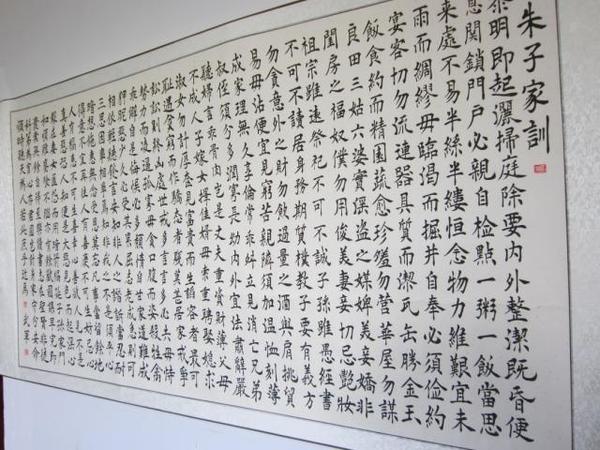 朱子家訓
黎明即起灑掃庭除要内外整潔既昏便
息關鎖門戶必親自检點一粥一飯當思
来處不易半絲半縷恒念物力維艱宜未
雨而綢繆毋臨渴而掘井自奉必須儉約
宴客切勿流連器具質而潔瓦缶勝金玉
飯食約而精園蔬愈珍饈勿營華屋勿謀
良田三姑六婆實淫盗之媒婢美妾嬌非
閨房之福奴僕勿用俊美妻妾切忌艷妝
祖宗雖遠祭祀不可不誠子孫雖愚經書
不可不讀居身務期質樸教子要有義方
勿貪意外之財勿飲過量之酒與肩挑貿
易毋佔便宜見窮苦親隣須加温恤刻薄
成家理無久享倫常乖舛立見消亡兄弟
叔侄須分多潤寡長幼内外宜法肅辭嚴
聽婦言乖骨肉豈是丈夫重資財薄父母
不成人子嫁女擇佳婿毋索重聘娶媳求
淑女勿計厚奩見富貴而生諂容者最可
恥遇貧窮而作驕態者賤莫甚居家戒爭
訟訟則終凶處世戒多言言多必失毋恃
勢力而凌逼孤寡毋貪口腹而恣殺牲禽
乖僻自是悔誤必多頹惰自甘家道難成
狎昵惡少久必受其累屈志老成急則可
相依輕聽發言安知非人之譖訴當忍耐
三思因事相爭焉知非我之不是須平心
暗想施惠無念受恩莫忘凡事當留餘地
得意不宜再往人有喜慶不可生妒忌心
人有禍患不可生喜幸心善欲人見不是
真善惡恐人知便是大惡見色而起淫心
報在妻女匿怨而用暗箭禍延子孫家門
和順雖饔飧不繼亦有餘歡國課早完即
囊橐無餘自得至樂讀書志在聖賢非徒
科第為官心存君國豈計身家守分安命
順時聽天為人若此庶乎近焉 武軍